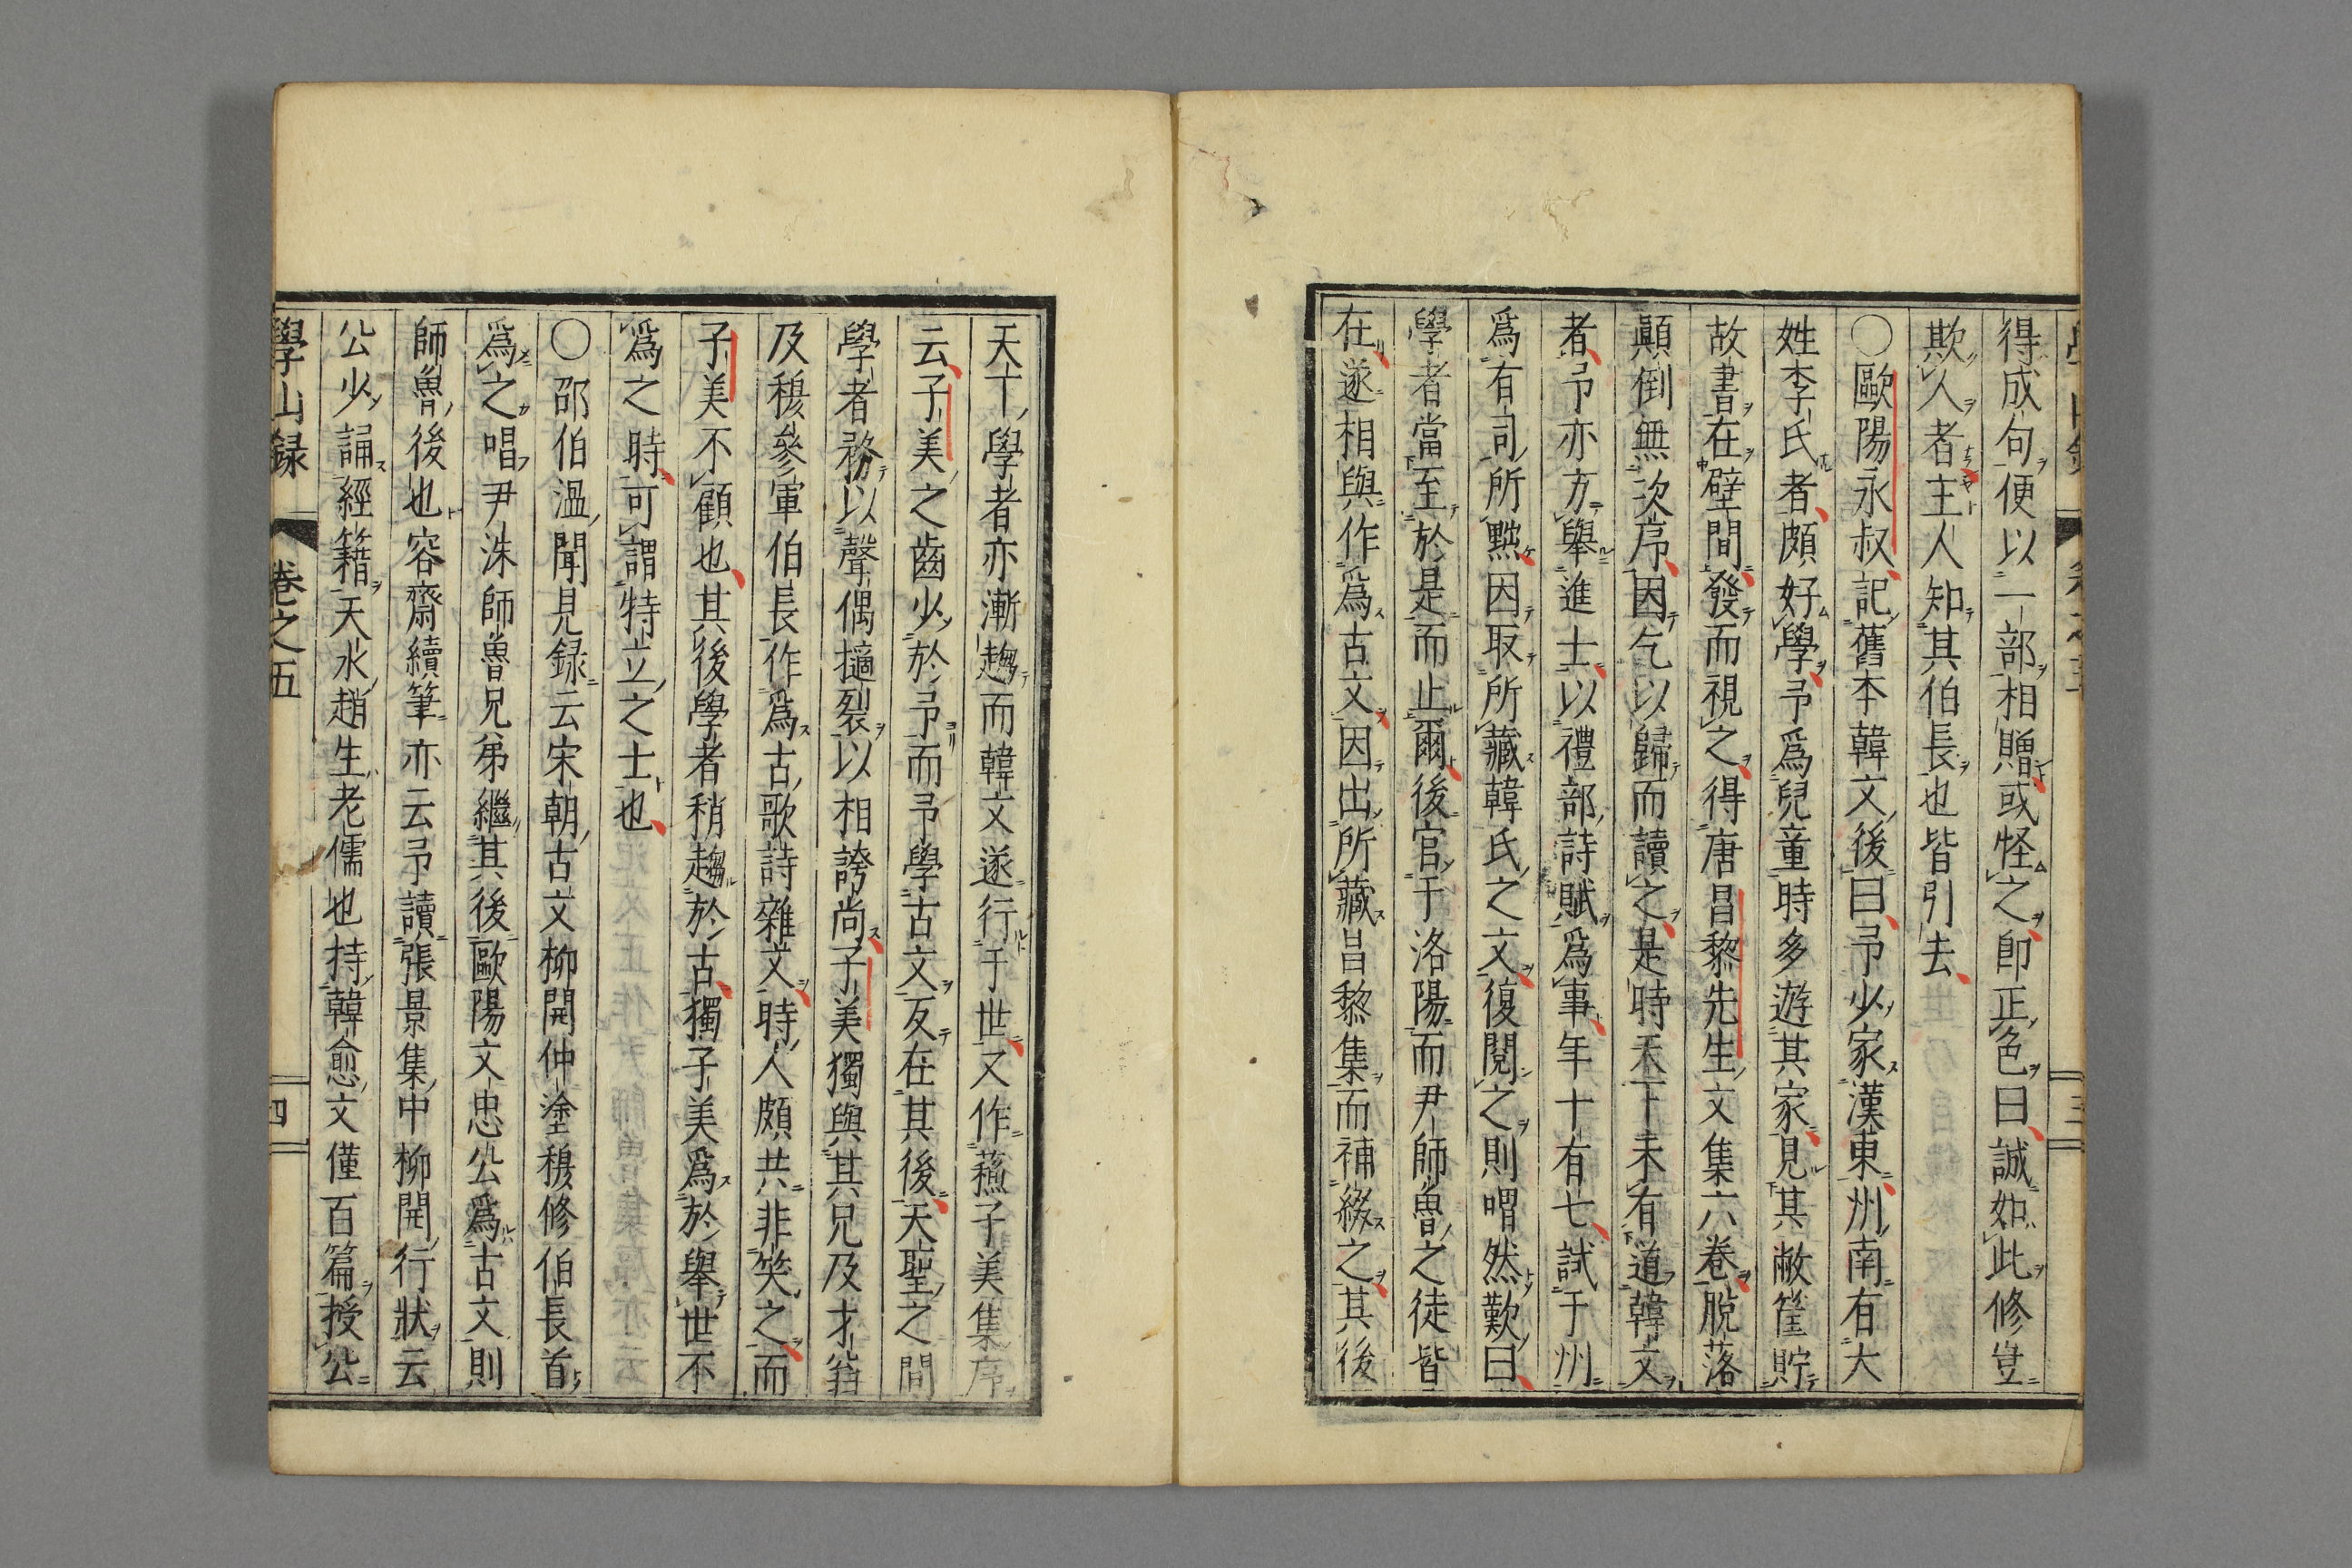 得成句便以一部相贈或怪之卽正色曰誠如此修豈
欺人者主人知其伯長也皆引去
○歐陽永叔記舊本韓文後曰予少家漢東州南有大
姓李氏者頗好學予爲兒童時多遊其家見其敝筐貯
故書在壁間發而視之得唐昌黎先生文集六卷脫落
顚倒無次序因乞以歸而讀之是時天下未有道韓文
者予亦方舉進士以禮部詩賦爲事年十有七試于州
爲有司所黜因取所藏韓氏之文復閱之則喟然歎曰
學者當至於是而止爾後官于洛陽而尹師魯之徒皆
在遂相與作爲古文因出所藏昌黎集而補綴之其後
天下學者亦漸趨而韓文遂行于世又作蘇子美集序
云子美之齒少於予而予學古文反在其後天聖之間
學者務以聲偶擿裂以相誇尚子美獨與其兄及才翁
及穆參軍伯長作爲古歌詩雜文時人頗共非笑之而
子美不顧也其後學者稍趨於古獨子美爲於舉世不
爲之時可謂特立之士也
○邵伯溫聞見録云宋朝古文柳開仲塗穆修伯長首
爲之唱尹洙師魯兄弟繼其後歐陽文忠公爲古文則
師魯後也容齋續筆亦云予讀張景集中柳開行狀云
公少誦經籍天水趙生老儒也持韓愈文僅百篇授公
學山録 卷之五 四